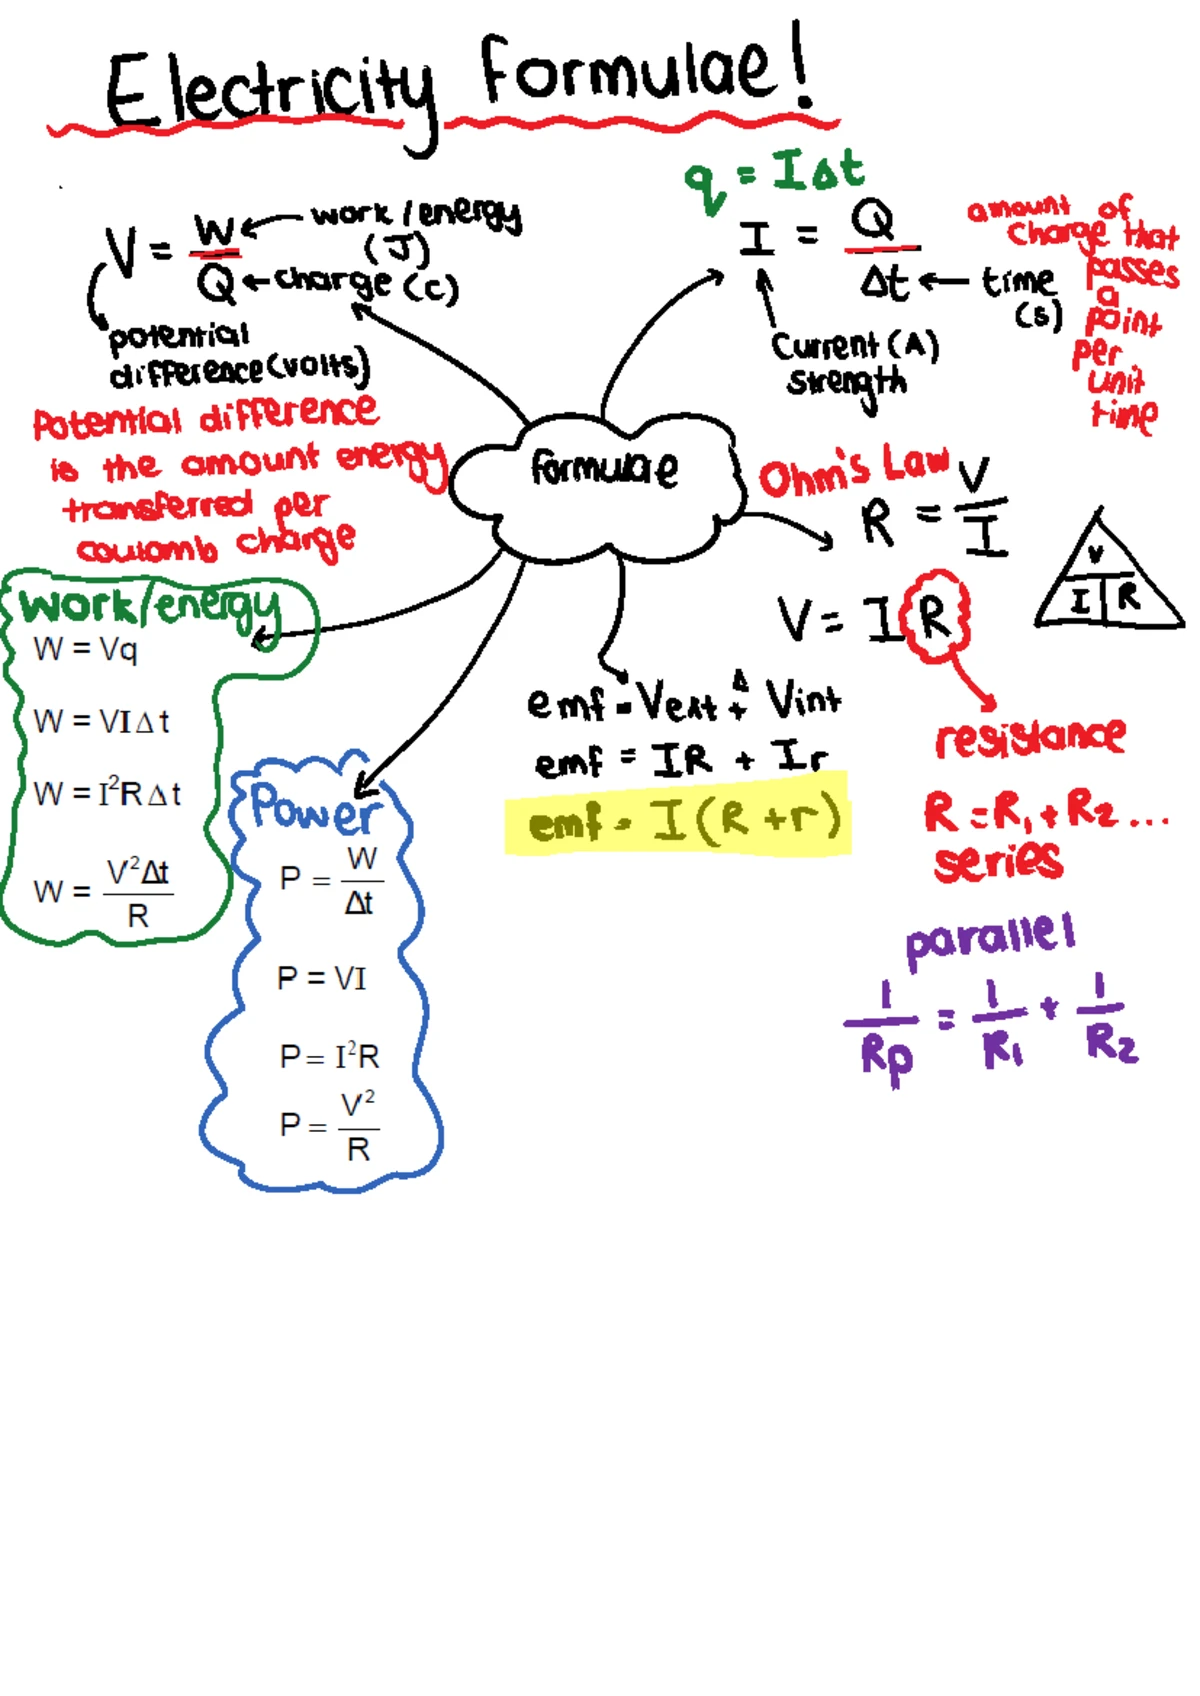 Electricity formulae!
V = W/Q
work/energy (J)
charge (c)
potential
difference (volts)
Potential difference
is the amount energy
transferred per
coulomb charge
q = IΔt
I = Q/Δt
time (s)
Current (A)
strength
amount of
charge that
passes
a
point
per
unit
time
formulae
Ohm's Law
R = V/I
V = IR
V
I R
resistance
R = R₁ + R₂ ...
series
parallel
1/Rp = 1/R₁ + 1/R₂
emf = Vext + Vint
emf = IR + Ir
emf = I(R + r)
Work/energy
W = Vq
W = VIΔt
W = I²RΔt
W = V²Δt/R
Power
P = W/Δt
P = VI
P = I²R
P = V²/R